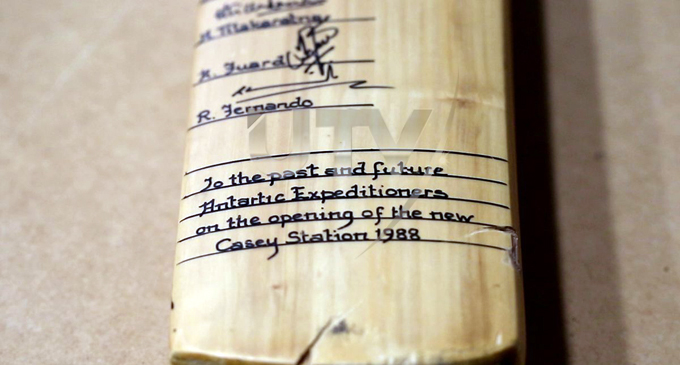 R. Fernando
UTV
To the past and future
Antartic Expeditioners
on the opening of the new
Casey Station 1988